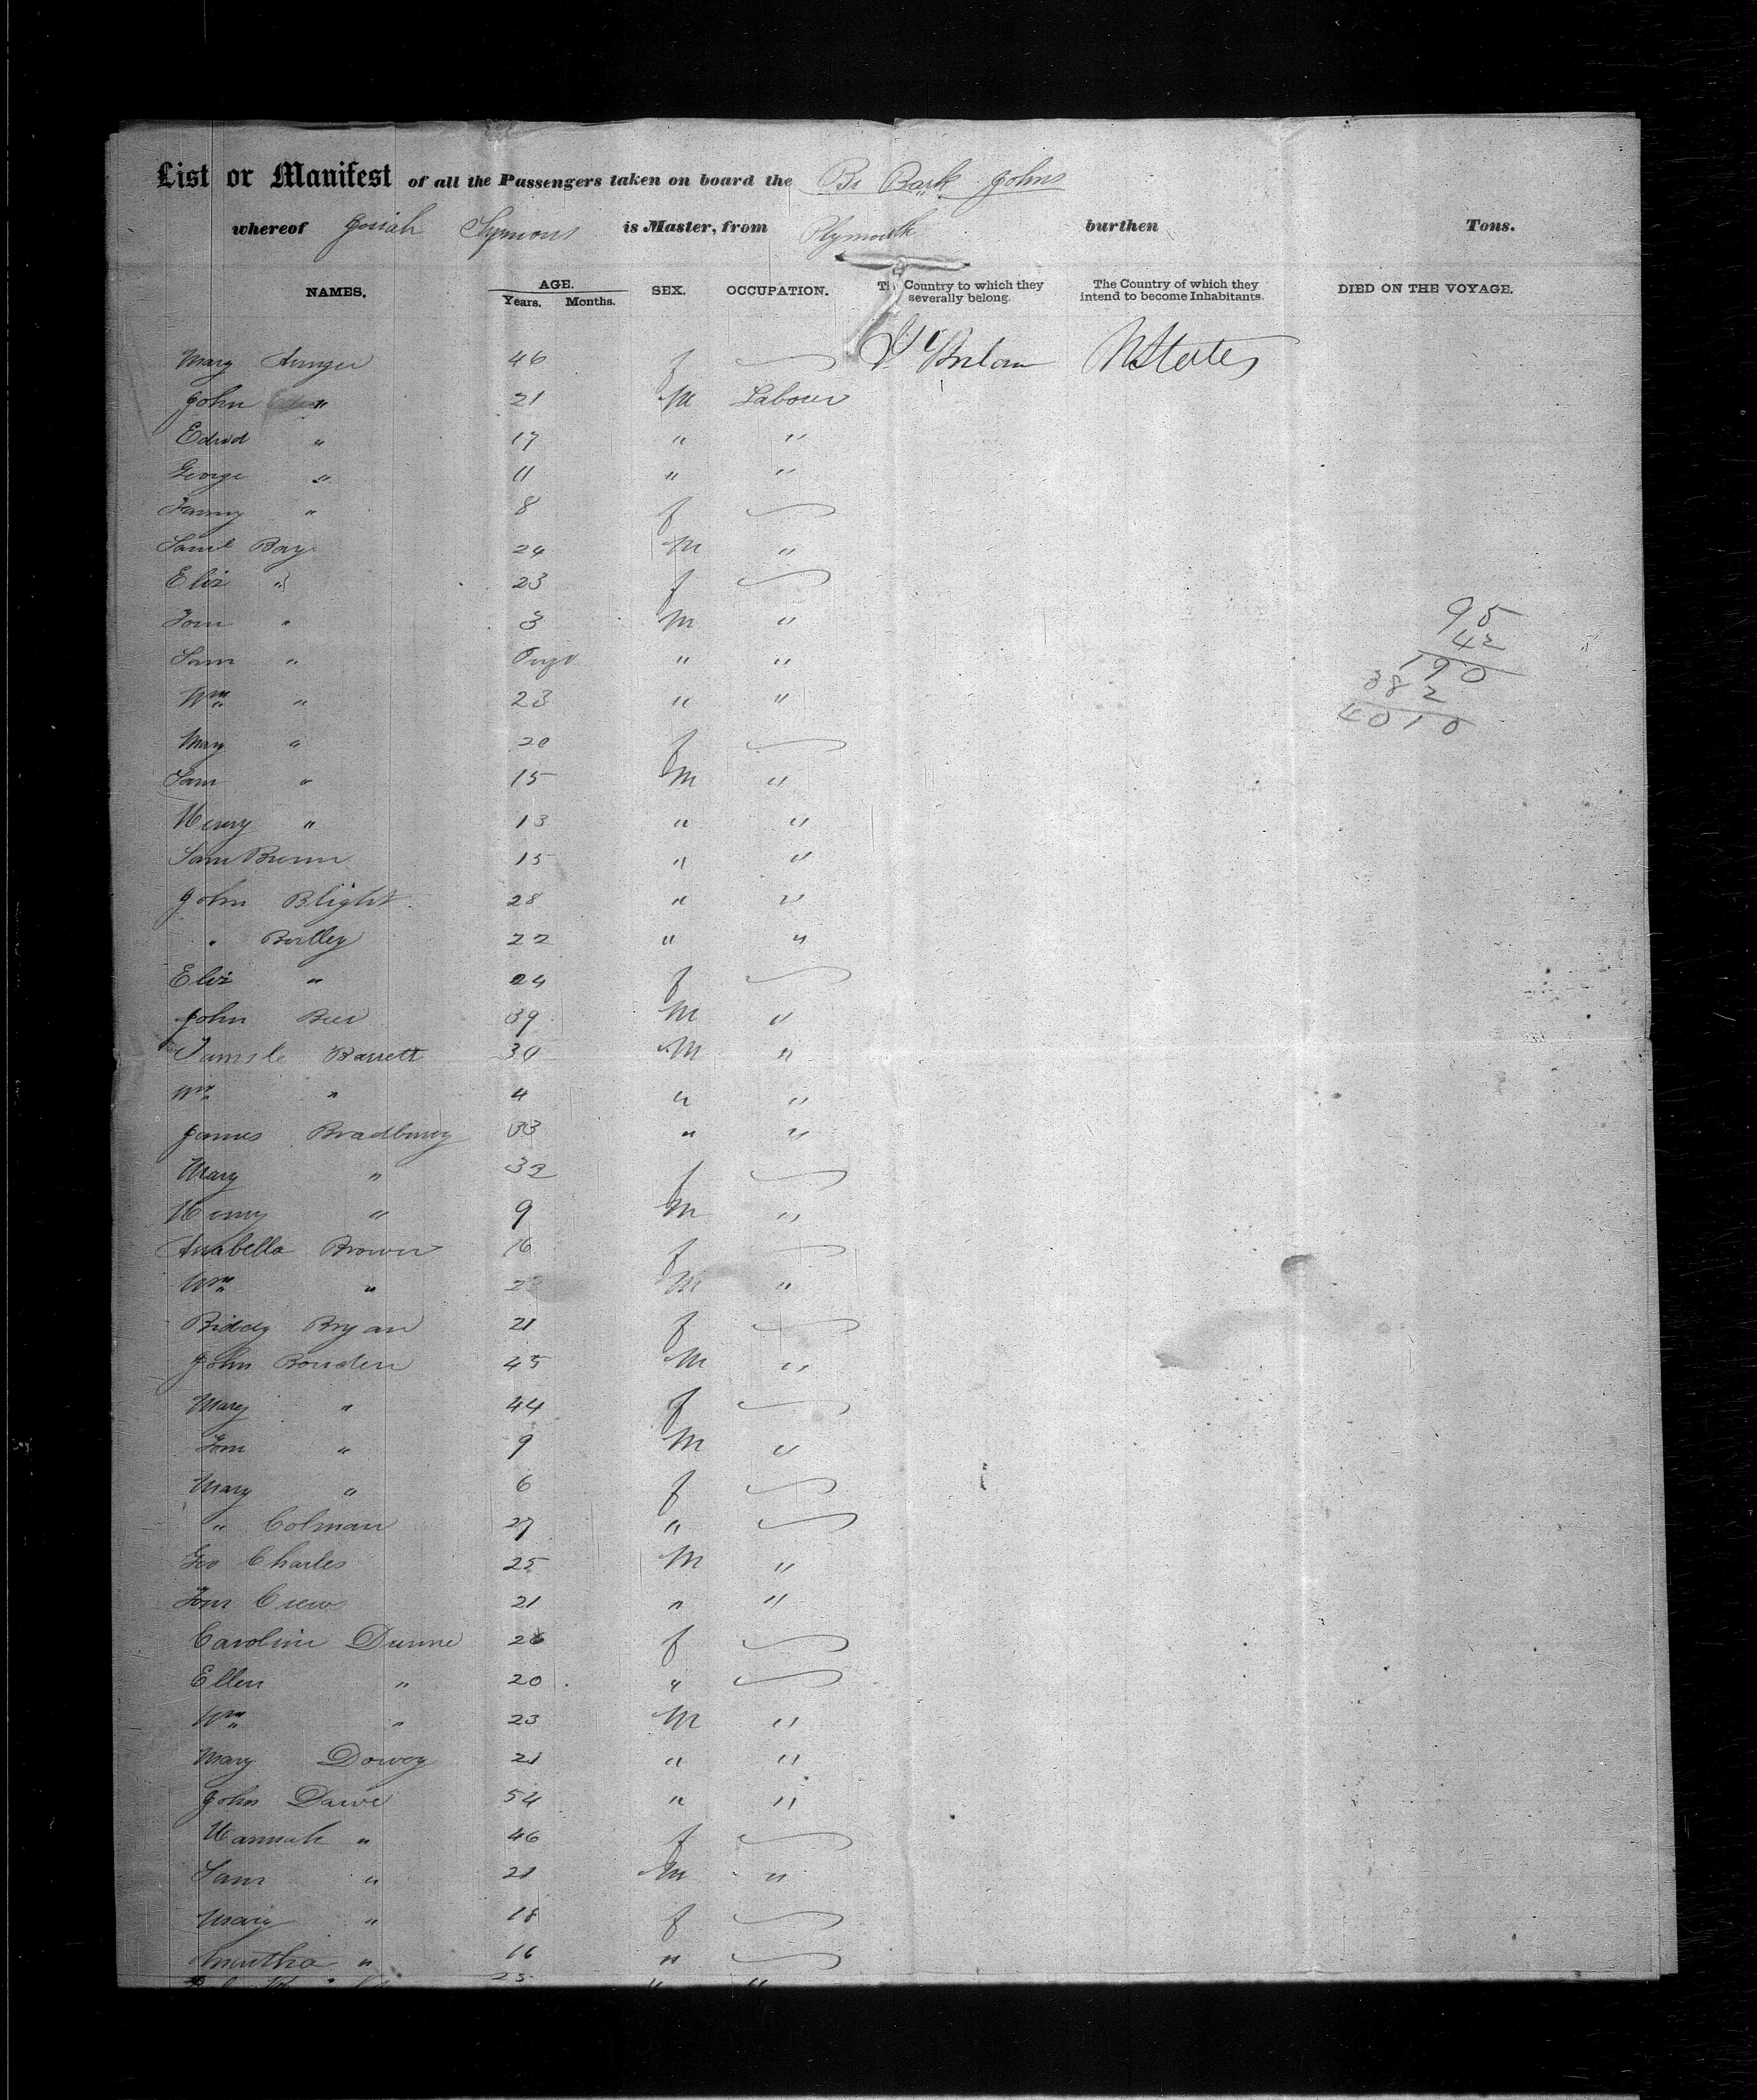 List or Manifest of all the Passengers taken on board the Br Bark Johns
whereof Josiah Symons is Master, from Plymouth burthen Tons.
NAMES. AGE. Years. Months. SEX. OCCUPATION. The Country to which they severally belong. The Country of which they intend to become Inhabitants. DIED ON THE VOYAGE.
Mary 46 f Gt Britain U States
John " 21 M Labour
Edwd " 17 " "
George " 11 " "
Fanny " 8 f
Saml Bay 24 M "
Eliz " 23 f
Tom " 3 M "
Sam " " "
Wm " 23 " "
Mary " 20 f
Sam " 15 M "
Henry " 13 " "
Sam 15 " "
John Blight 28 " "
" 22 " "
Eliz " 24 f
John 39 M "
Barrett 30 M "
Wm " 4 " "
James Bradbury 33 " "
Mary " 32 f
Henry " 9 M "
Anabella Brown 16 f
Wm " M "
Biddy Bryan 21 f
John 45 M "
Mary " 44 f
Tom " 9 M "
Mary " 6 f
" Colman 27 "
Geo Charles 25 M "
Tom Crews 21 " "
Caroline Dunne 26 f
Ellen " 20 "
Wm " 23 M "
Mary Dovey 21 " "
John Dawe 54 " "
Hannah " 46 f
Sam " 21 M "
Mary " 18 f
" 16 "
25 " "
95
42
190
382
4010